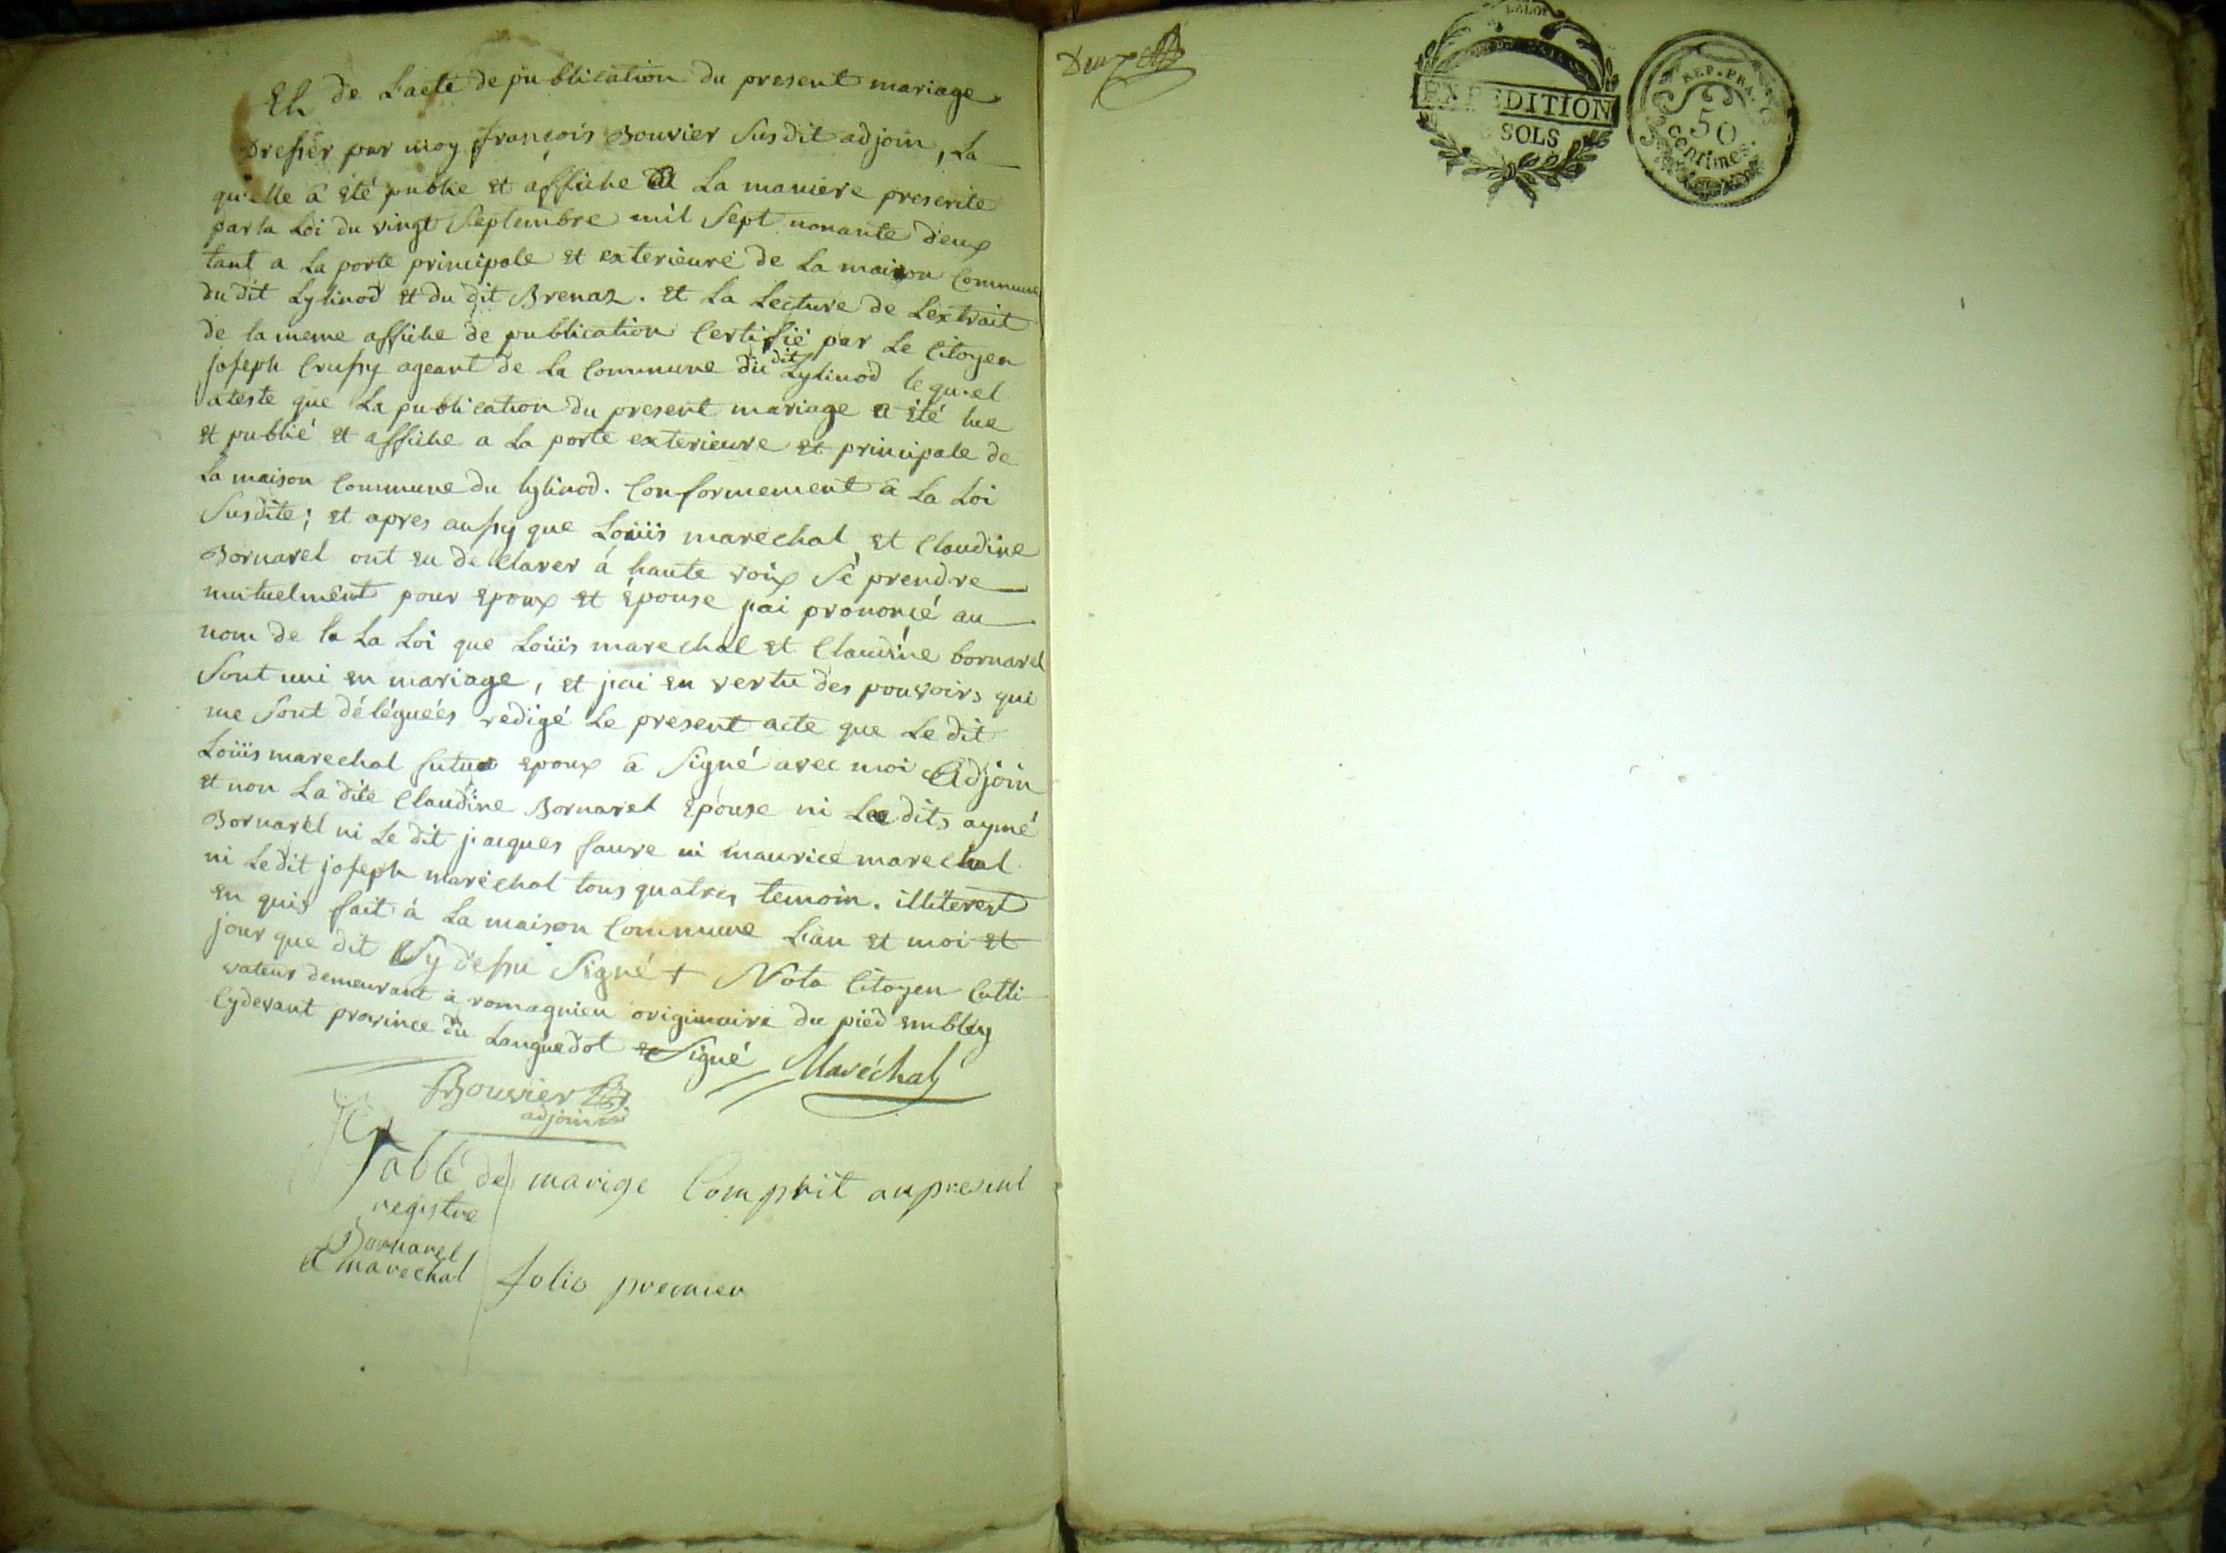 Et de L'acte de publication du present mariage
Dresser par moy françois Bouvier Susdit adjoin, La
qu'elle a été publie et affiché a La maniere prescrite
par la Loi du vingt Septembre mil Sept nonante deux
tant a La porte principale et exterieure de La maison Commune
du dit Lylinod et du dit Brenaz. et La Lecture de L'extrait
de la meme affiche de publication Certifié par Le Citoyen
joseph Crussy ageant de La Commune du dit Lylinod le quel
ateste que La publication du present mariage a été lue
et publié et affiche a La porte exterieure et principale de
La maison Commune du lylinod. Conformement a La Loi
Susdite; et apres aussy que Loüis marechal et Claudine
Bornarel ont eu de Clarer á haute voix Sé prendre
mutuelment pour Epoux et épouse j'ai prononcé au
nom de la La Loi que Loüis marechal et Claudine bornarel
Sont uni en mariage, et j'ai en vertu des pouvoirs qui
me Sont déléguées redigé Le present acte que Le dit
Loüis marechal futur epoux a Signé avec moi Adjoin
et non La dite Claudine Bornarel Epouse ni Le dits aymé
Bornarel ni Le dit jacques faure ni maurice marechal
ni Ledit joseph maréchal tous quatres temoin. illiterest
en quis fait à La maison Commune L'an et moi et
jour que dit Cy dessu Signé + Nota Citoyen Culti
vateur demeurant à romagnieu originaire du pied emblay
Cydevant province du Languedot et Signé Maréchal
FBouvier
adjoint
Table de marige Comprit au present
registre
Bornarel
et marechal folio premier
Deux
LA LOI
EXPEDITION
SOLS
REP. FRA.
50
centimes.